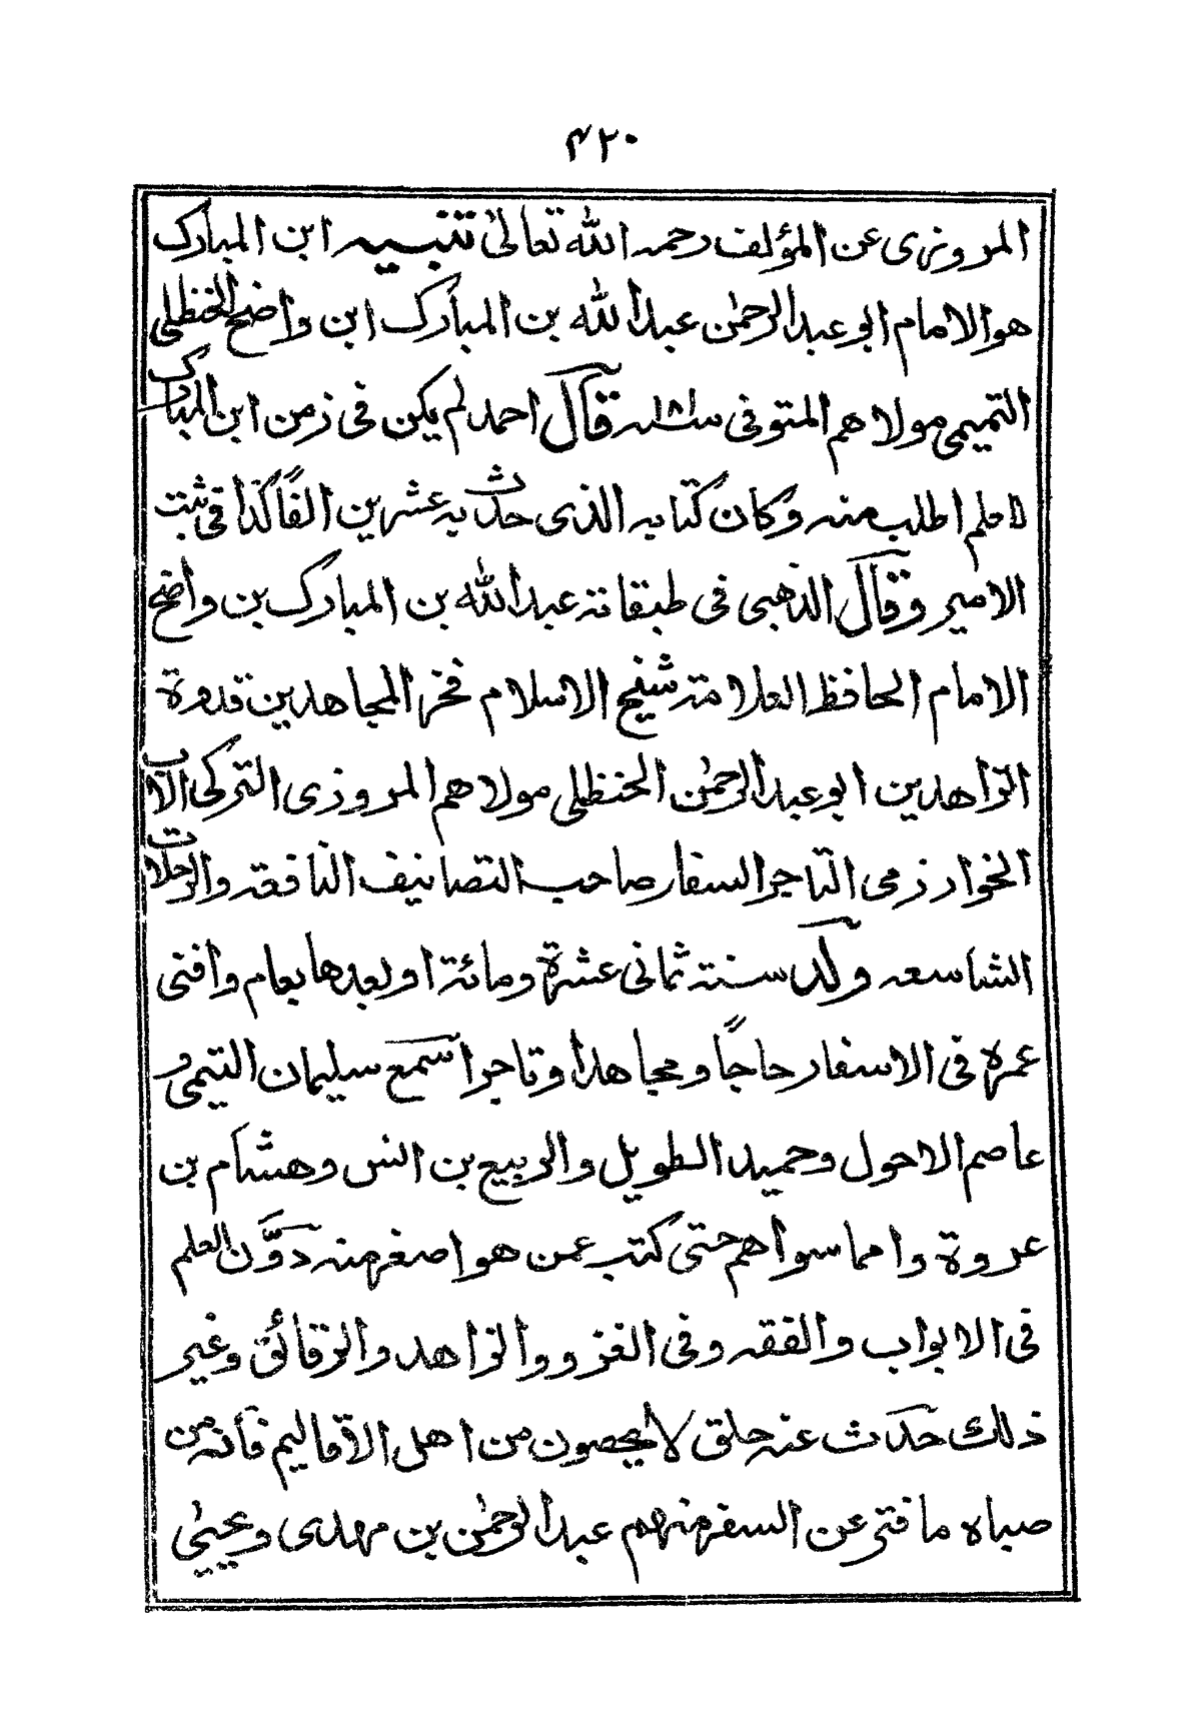 ۴۲۰
المروزى عن المؤلف رحمه الله تعالىٰ تنبيه ابن المبارك
هو الامام ابو عبد الرحمٰن عبد الله بن المبارك ابن واضح الحنظلى
التميمى مولاهم المتوفى سنة ١٨١ قال احمد لم يكن فى زمن ابن المبارك
لاعلم اطلب منه وكان كتابه الذى حدث به عشرين الفًا كذا فى ثبت
الامير وقال الذهبى فى طبقاته عبد الله بن المبارك بن واضح
الامام الحافظ العلامة شيخ الاسلام فخر المجاهدين قدوة
الزاهدين ابو عبد الرحمٰن الحنظلى مولاهم المروذى التركى الاب
الخوارزمى التاجر السفار صاحب التصانيف النافقة والرحلات
الشاسعه ولد سنة ثمانى عشرة ومائة او بعدها بعام وافنى
عمره فى الاسفار حاجًا ومجاهدا وتاجرا سمع سليمان التيمى و
عاصم الاحول وحميد الطويل والربيع بن انس وهشام بن
عروة وامما سواهم حتى كتب عمن هو اصغر منه دوَّن العلم
فى الابواب والفقه وفى الغزو والزاهد والرقائق وغير
ذلك حدث عنه خلق لا يحصون من اهل الاقاليم فأنه من
صباه ما فتر عن السفر منهم عبد الرحمٰن بن مهدى ويحيىٰ